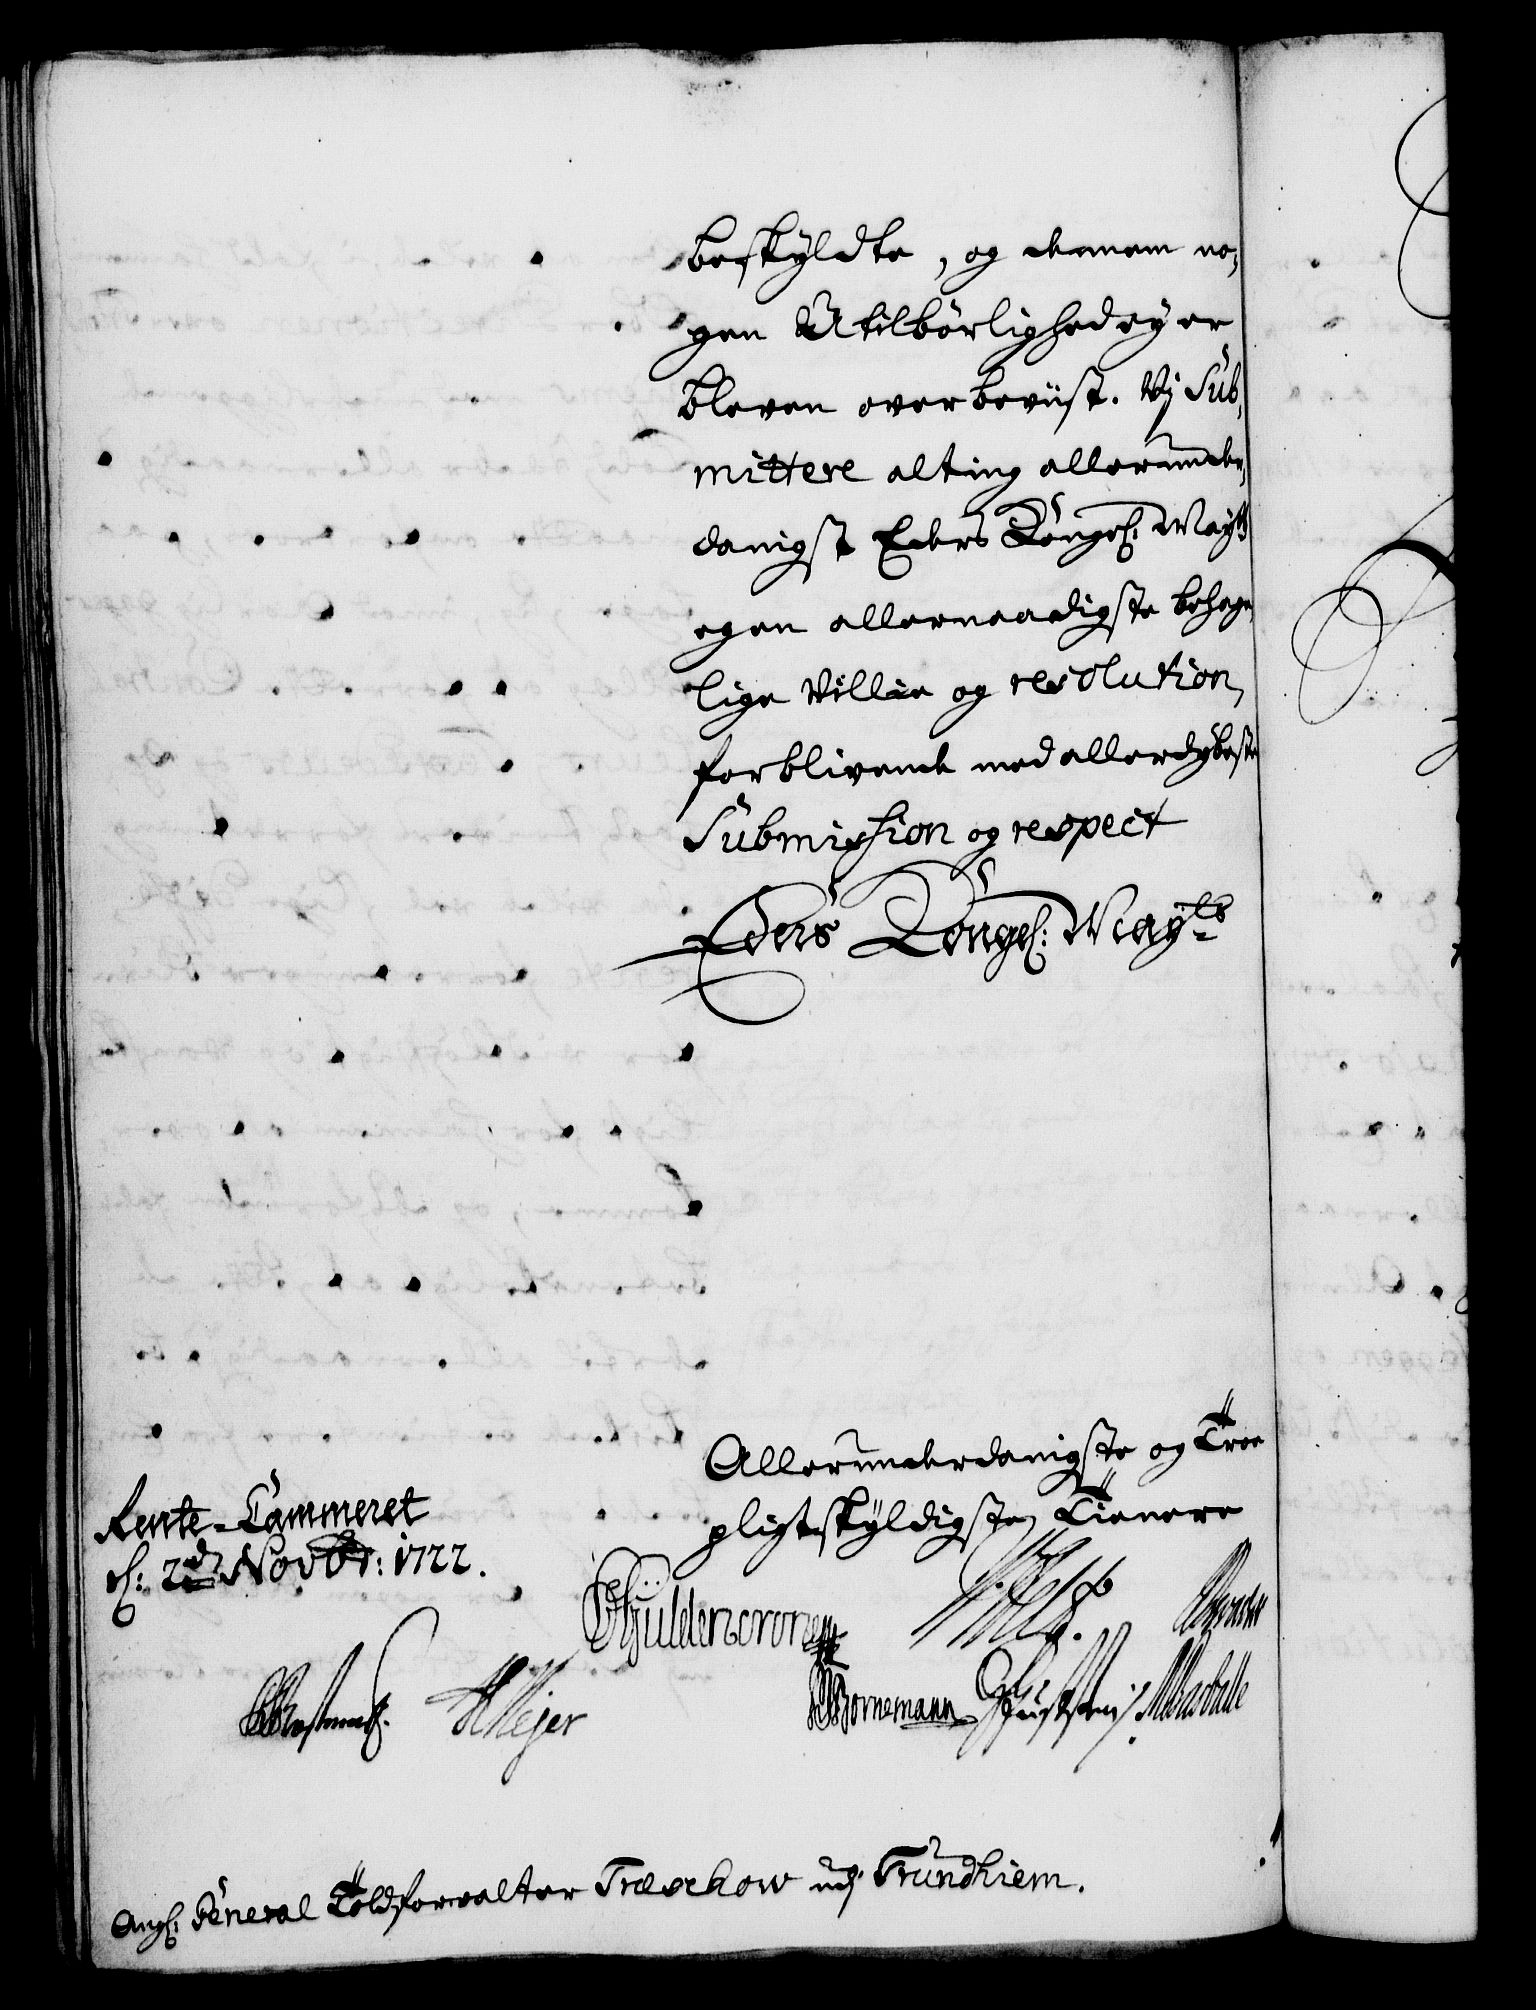 beskÿldte, og dennem no,
gen Utilbörlighed ey er
bleven overbeviist. Vj Sub,
mittere alting allerunder,
danigst Eders Kongel: Mayts
egen allernaadigste behage,
lige Villie og resolution,
forblivende med allerdybeste
Submission og respect
Eders Kongel: Mayts
Allerunderdanigste og Troe
pligtskÿldigste Tienere
Rente-Cammeret
d: 2den Novbr: 1722.
Güldencrone
Meÿer Bornemann
Ang: General Toldforvalter Treschow udj Trundhiem.